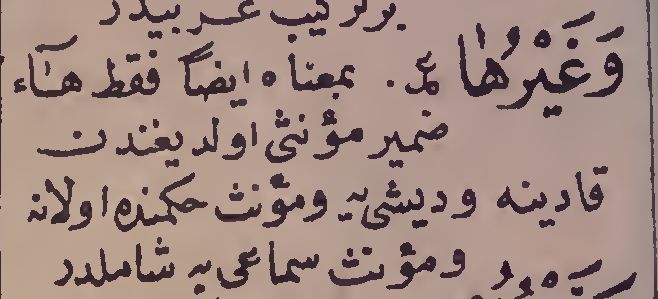 بر تركيب عربيدر
وَغَيْرُهَا ع‍. بمعناه ايضاً فقط هـآء
ضمير مؤنثى اولديغندن
قادينه وديشى‌يه ومؤنث حكمنده اولانه
ومؤنث سماعى‌يه شاملدر